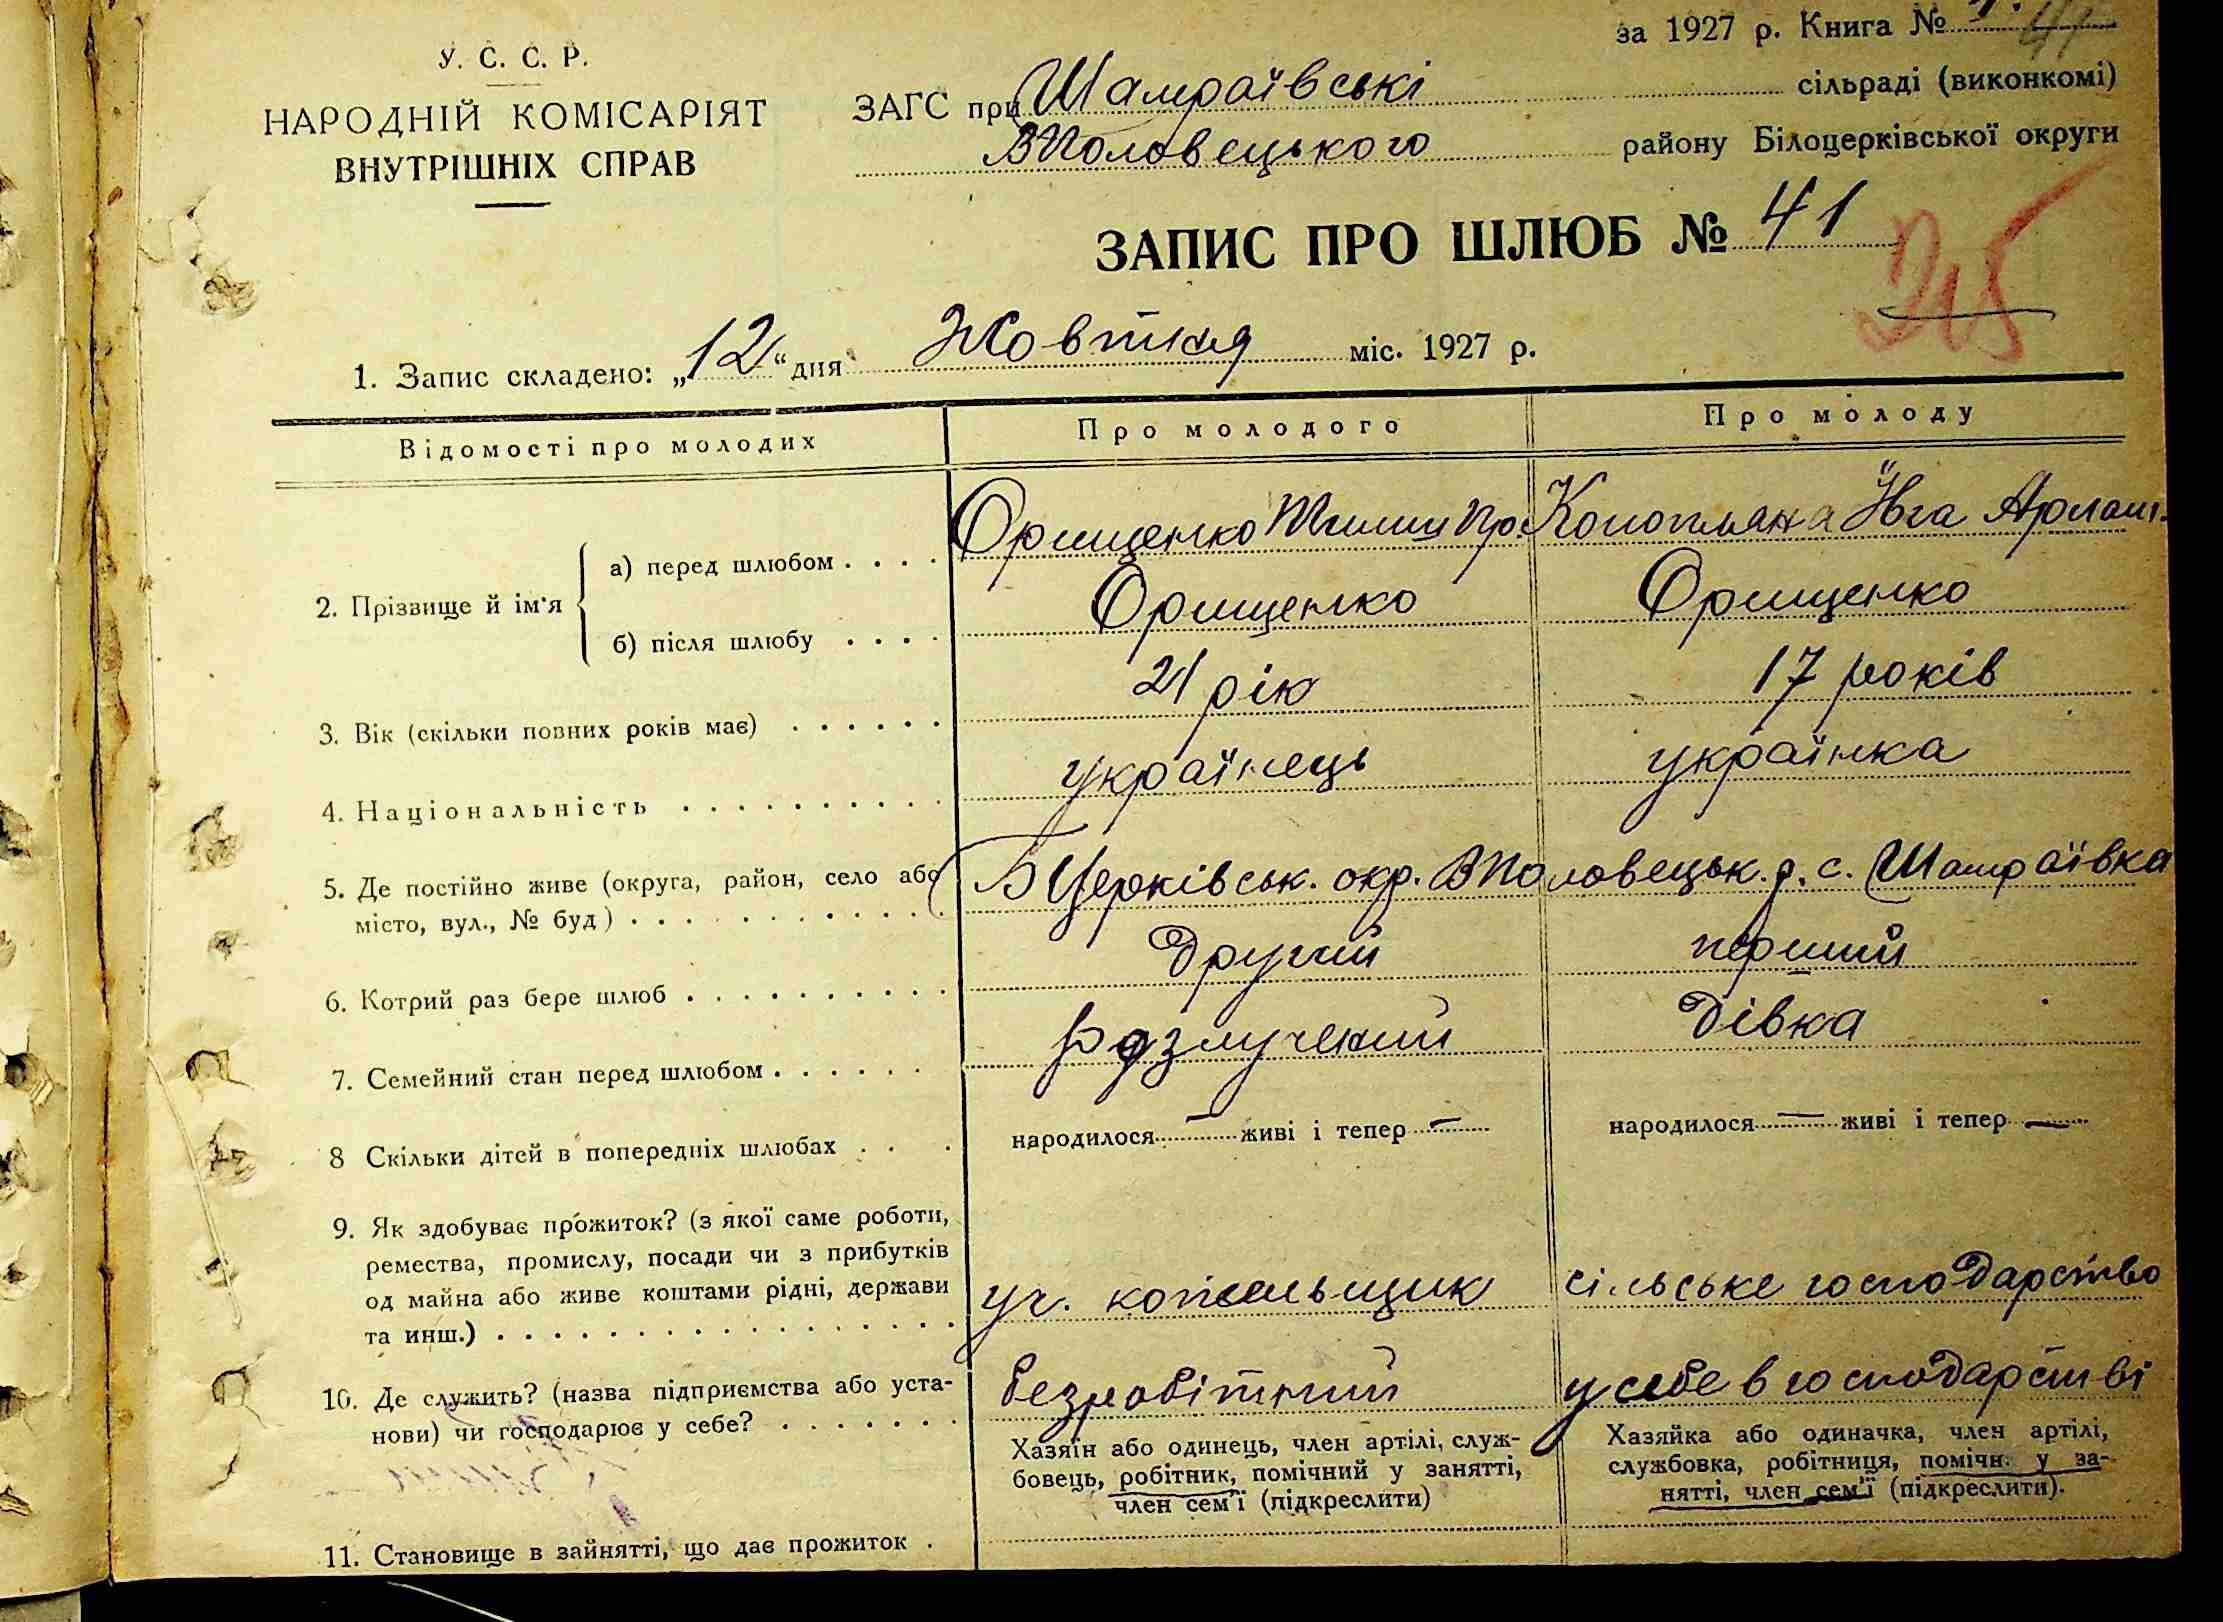 за 1927 р. Книга №
У. С. С. Р.
НАРОДНІЙ КОМІСАРІЯТ
ВНУТРІШНІХ СПРАВ
ЗАГС при Шамраївські сільраді (виконкомі)
ВПоловецького району Білоцерківської округи
ЗАПИС ПРО ШЛЮБ № 41
1. Запис складено: „12“ дня Жовтня міс. 1927 р.
Відомості про молодих
Про молодого
Про молоду
2. Прізвище й ім'я
а) перед шлюбом . . . . Орищенко Пр. Конопляна
б) після шлюбу . . . . Орищенко Орищенко
3. Вік (скільки повних років має) . . . . . . 21 рік 17 років
4. Національність . . . . . . . . . . українець українка
5. Де постійно живе (округа, район, село або
місто, вул., № буд) . . . . . . . . . . . БЦерківськ. окр. ВПоловецьк. р. с. Шамраївка
6. Котрий раз бере шлюб . . . . . . . . . . другий перший
7. Семейний стан перед шлюбом . . . . . . розлучений дівка
8 Скільки дітей в попередніх шлюбах . . . народилося — живі і тепер — народилося — живі і тепер —
9. Як здобуває прожиток? (з якої саме роботи,
ремества, промислу, посади чи з прибутків
од майна або живе коштами рідні, держави
та инш.) . . . . . . . . . . . . . . . . . уч. котельщик сільське господарство
10. Де служить? (назва підприємства або уста-
нови) чи господарює у себе? . . . . . . . безробітний у себе в господарстві
Хазяїн або одинець, член артілі, служ-
бовець, робітник, помічний у занятті,
член сем'ї (підкреслити)
Хазяйка або одиначка, член артілі,
службовка, робітниця, помічн. у за-
нятті, член сем'ї (підкреслити).
11. Становище в зайнятті, що дає прожиток .